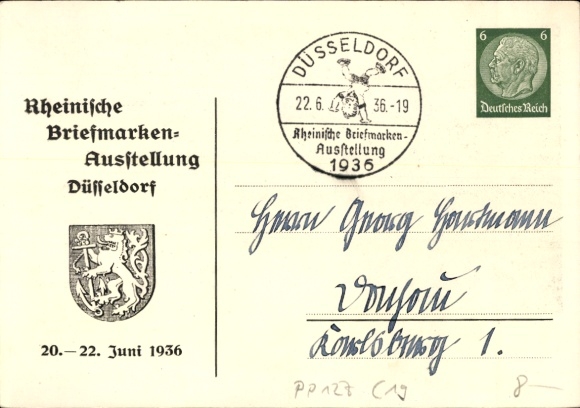 Rheinische
Briefmarken-
Ausstellung
Düsseldorf
20.–22. Juni 1936
DÜSSELDORF
22.6. 36.-19
Rheinische Briefmarken-
Ausstellung
1936
6 6
Deutsches Reich
Herrn Georg Hartmann
Dachau
Karlsburg 1.
PP127 C19 8–